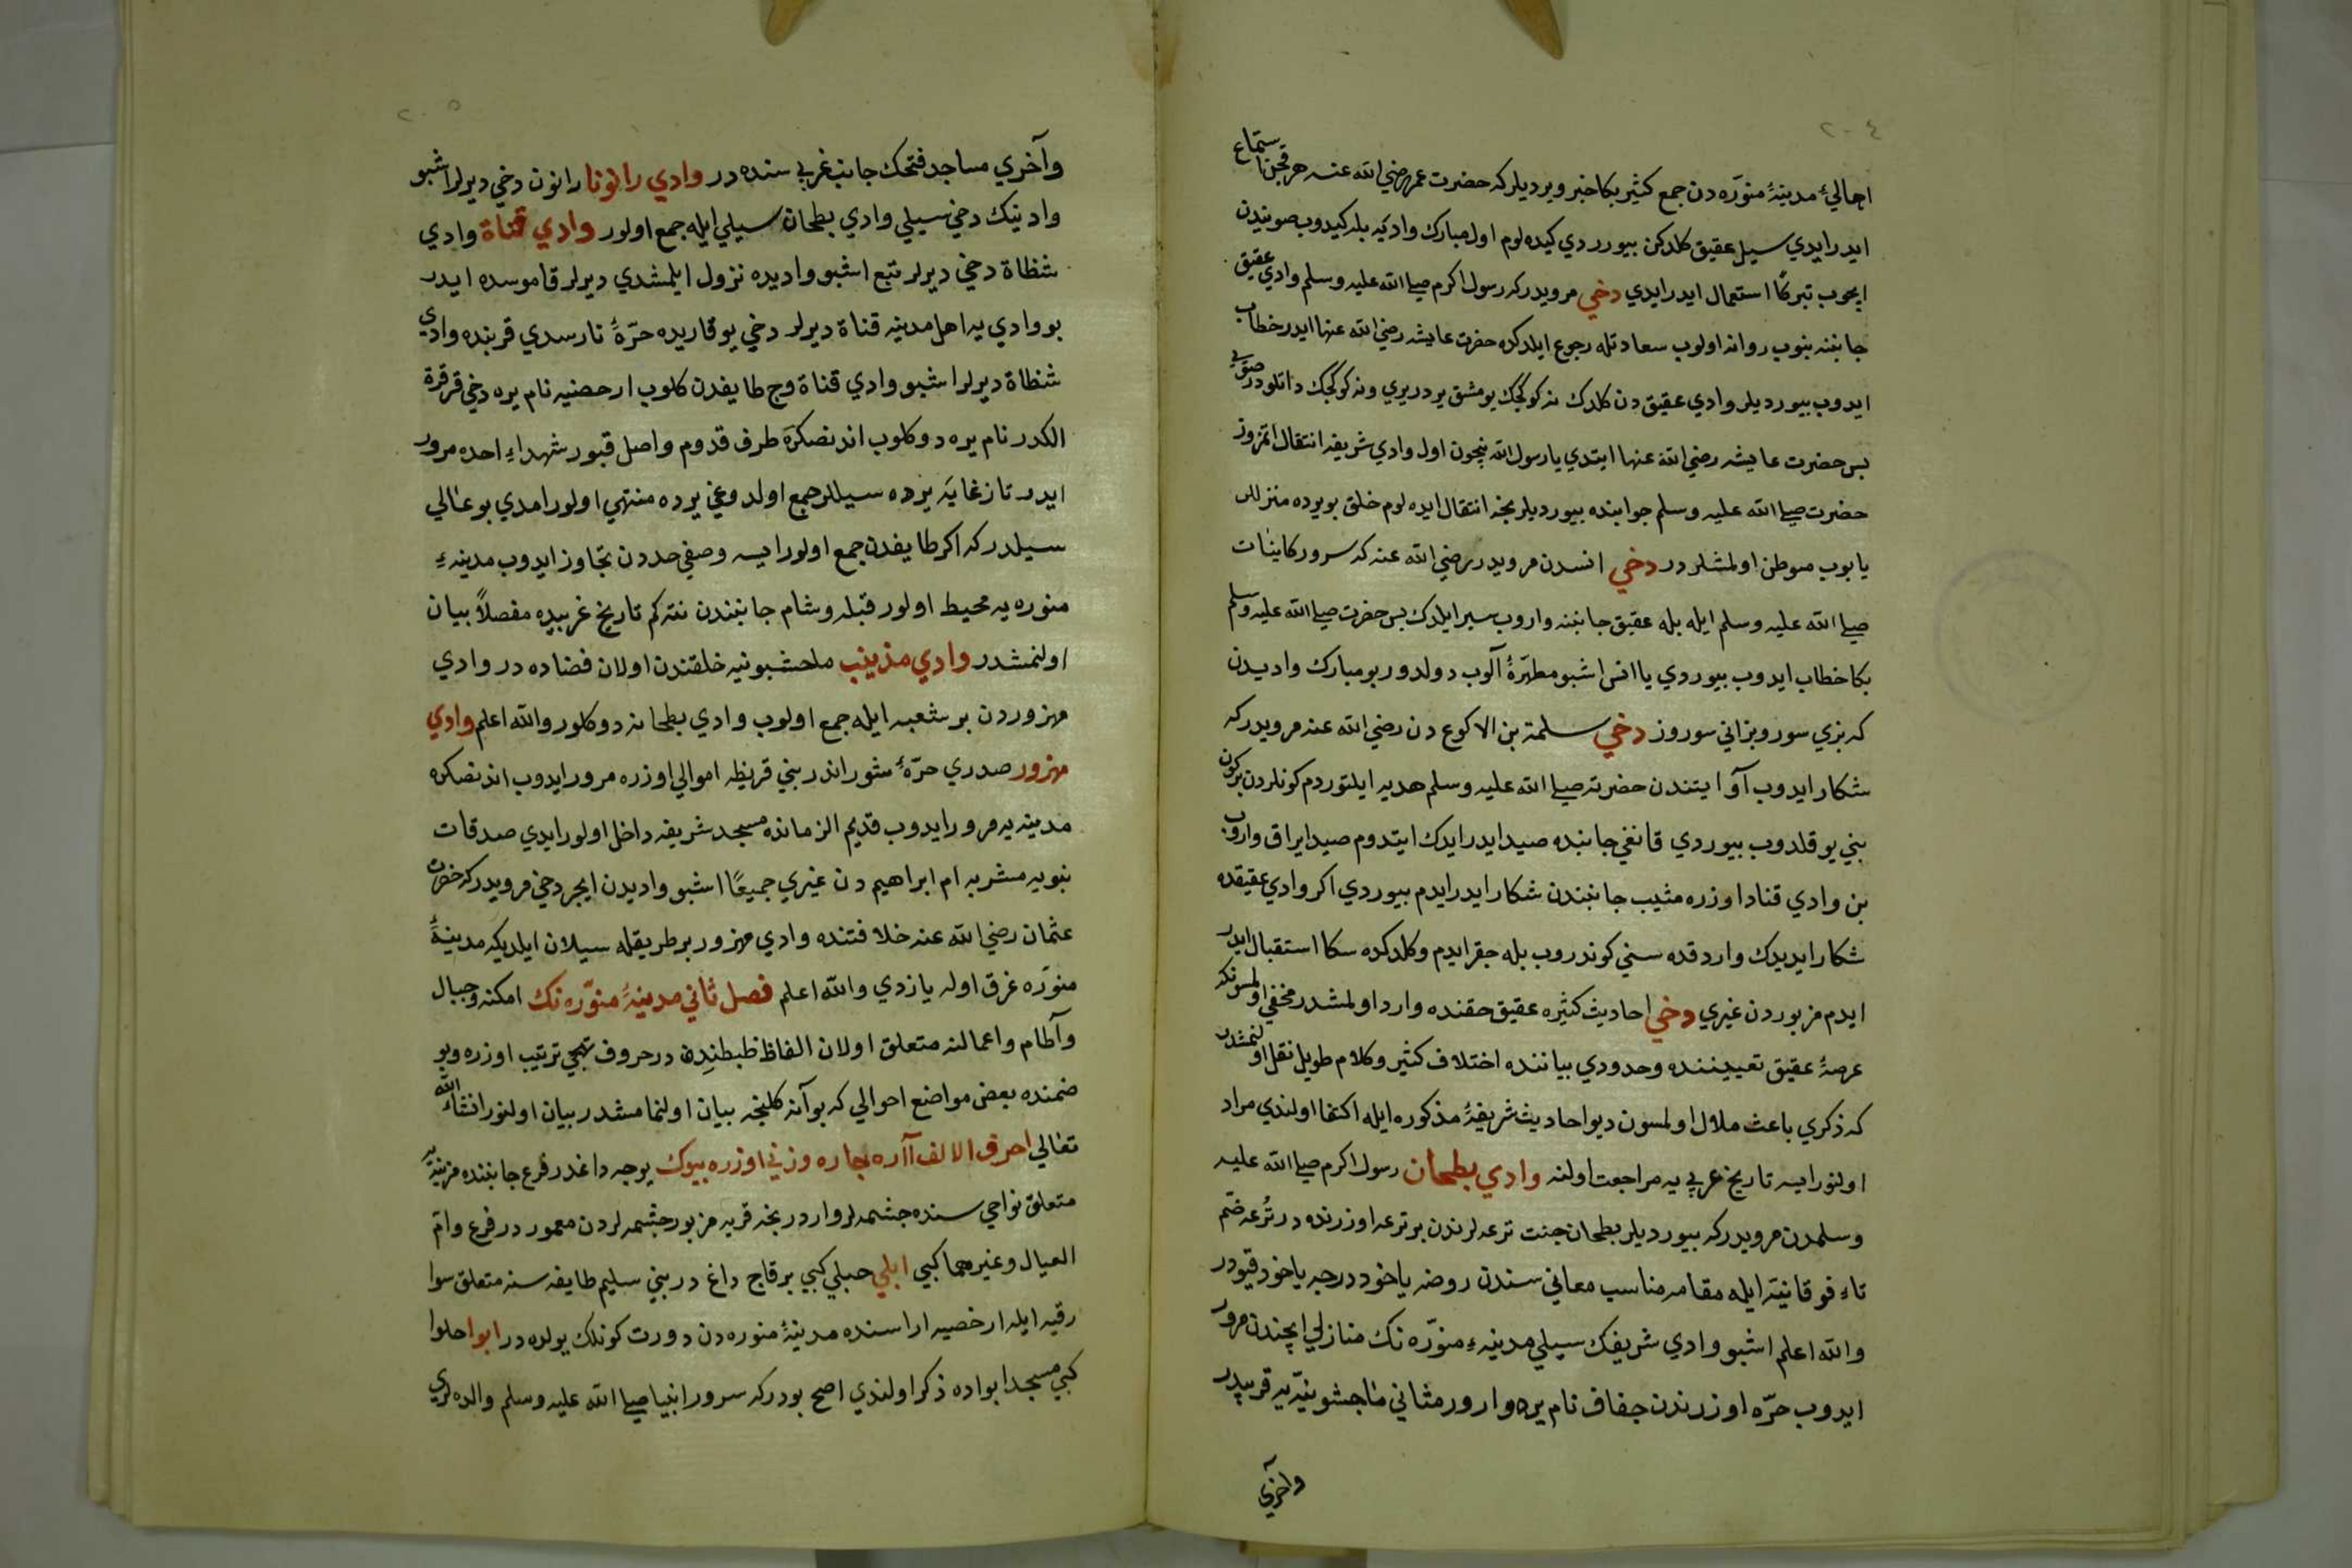 ٢٠٤
اهالئ مدينۀ منوّره دن جمع كثير بكا خبر ويرديلر كه حضرت عمر رضي الله عنه هر قچن استماع
ايدرايدي سيل عقيق كلدكن بيورردي كيده لوم اول مبارك واديَه بله كيدوب صويندن
ايچوب تبركًا استعمال ايدرايدي دخي مرويدر كه رسول اكرم صلى الله عليه وسلم وادي عقيق
جانبنه بنوب روانه اولوب سعادتله رجوع ايلدكده حضرت عايشه رضي الله عنها ايدر خطاب
ايدوب بيورديلر وادي عقيق دن كلدك نه كوكچك يومشق يردر يري ونه كوكچك داتلودر صويى
بس حضرت عايشه رضي الله عنها ايتدي يا رسول الله نيچون اول وادي شريفه انتقال اتمزوز
حضرت صلى الله عليه وسلم جوابنده بيورديلر نجه انتقال ايده لوم خلق بو يرده منزللر
يابوب متوطن اولمشلردر دخي انسدن مرويدر رضي الله عنه كه سرور كاينات
صلى الله عليه وسلم ايله بله عقيق جانبنه واروب سير ايلدك بس حضرت صلى الله عليه وسلم
بكا خطاب ايدوب بيوردي يا انس اشبو مطهرۀ آلوب دولدور بو مبارك واديدن
كه بزي سور وبز اني سوروز دخي سلمة بن الاكوع دن رضي الله عنه مرويدر كه
شكار ايدوب آو ايتندن حضرته صلى الله عليه وسلم هديه ايلتوردم كونلردن بر كون
بني يوقلدوب بيوردي قانغي جانبده صيد ايدرايدك ايتدوم صيد ايراق واروب
بن وادي قناد اوزره مثيب جانبندن شكار ايدرايدم بيوردي اكر وادي عقيقده
شكار ايديدك واردقده سني كوندروب بله چقرايدم وكلدكده سكا استقبال ايدر
ايدم مزبوردن غيري دخي احاديث كثيره عقيق حقنده وارد اولمشدر مخفي اولمسونكه
عرصۀ عقيق تعييننده وحدودي بياننده اختلاف كثير وكلام طويل نقل اولنمشدر
كه ذكري باعث ملال اولمسون ديو احاديث شريفۀ مذكوره ايله اكتفا اولندي مراد
اولنورايسه تاريخ عربي يه مراجعت اولنه وادي بطحان رسول اكرم صلى الله عليه
وسلمدن مرويدر كه بيورديلر بطحان جنت ترعه لرندن بر ترعه اوزرنده در تُرعه ضمّ
تاء فوقانيّه ايله مقامه مناسب معاني سندن روضه ياخود درجه ياخود قپودر
والله اعلم اشبو وادي شريفك سيلي مدينۀ منوّره نك منازلي ايچندن مرور
ايدوب حرّه اوزرندن جفاف نام يره وارور مثاني ماجشونيّه يه قريبدر
وآخري
٢٠٥
وآخري مساجد فتحك جانب غربي سنده در وادي رانونا رانون دخي ديرلر اشبو
وادينك دخي سيلي وادي بطحان سيلي ايله جمع اولور وادي قناة وادي
شظاة دخي ديرلر تبع اشبو واديده نزول ايلمشدي ديرلر قاموسده ايدر
بو وادي يه اهل مدينه قناة ديرلر دخي يوقاريده حرّۀ نارسدي قربنده وادي
شظاة ديرلر اشبو وادي قناة وج طايفدن كلوب ارحضيه نام يره دخي قرقرة
الكدر نام يره دوكلوب اندنصكره طرف قدوم واصل قبور شهداء احده مرور
ايدر تا زغابه يرده سيللر جمع اولدوغي يرده منتهي اولور امدي بو عالي
سيلدر كه اكر طايفدن جمع اولورايسه وصفي حددن تجاوز ايدوب مدينۀ
منوره يه محيط اولور قبله وشام جانبندن نته كم تاريخ غربيده مفصلاً بيان
اولنمشدر وادي مذينب ملحشبونيه خلقندن اولان فضاده در وادي
مهزوردن بر شعبه ايله جمع اولوب وادي بطحانه دوكلور والله اعلم وادي
مهزور صدري حرّۀ شوراندر بني قريظه اموالي اوزره مرور ايدوب اندنصكره
مدينه يه مرور ايدوب قديم الزمانده مسجد شريفه داخل اولورايدي صدقات
نبويه مشربه ام ابراهيم دن غيري جميعًا اشبو واديدن ايچر دخي مرويدر كه حضرت
عثمان رضي الله عنه خلافتنده وادي مهزور بر طريقله سيلان ايلديكه مدينۀ
منوّره غرق اوله يازدي والله اعلم فصل ثاني مدينۀ منوّره نك امكنه وجبال
وآطام واعمالنه متعلق اولان الفاظ ظبطنده در حروف تهجي ترتيب اوزره وبو
ضمنده بعض مواضع احوالي كه بو آنه كلنجه بيان اولنمامشدر بيان اولنور انشاء الله
تعالي احرف الالف آآره بجاره وزني اوزره بيوك يوجه داغدر فرع جانبنده مزينه يه
متعلق نواحي سنده چشمه لر واردر نجه قريه مزبور چشمه لردن معمور در فرع وام
العيال وغيرهما كبي ابلي حبلي كبي بر قاج داغ در بني سليم طايفه سنه متعلق سوا
رقيه ايله ارخصيه اراسنده مدينۀ منوره دن دورت كونلك يولده در ابوا حلوا
كبي مسجد ابواده ذكر اولندي اصح بودر كه سرور انبيا صلى الله عليه وسلم والده لري